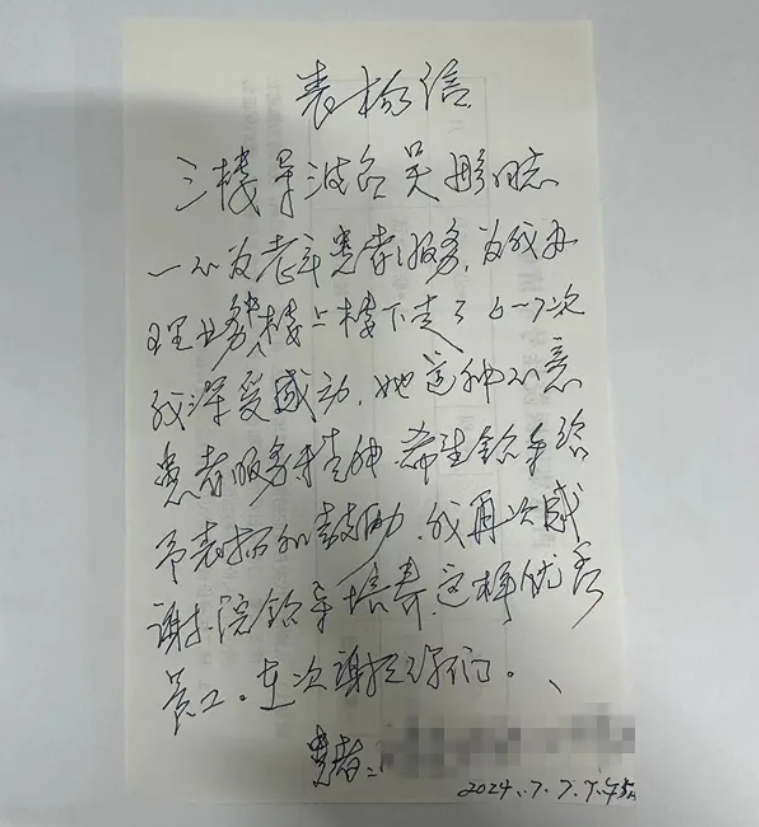 表扬信
三楼导波台吴彤同志
一心为老年患者服务,为我办
理业务楼上楼下走了6—7次
我深受感动,她这种心意
患者服务精神,希 给
予表扬和鼓励,我再次感
谢院领导培养这样优秀
员工。在次谢谢你们。
患者:
2024.7.7.